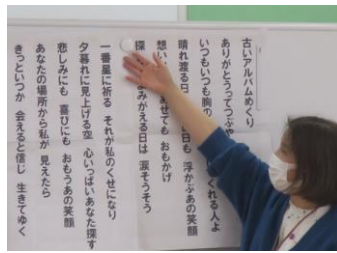 古いアルバムめくり
ありがとうってつぶや
いつもいつも胸の くれる人よ
晴れ渡る日 日も 浮かぶあの笑顔
想い あせても おもかげ
探 よみがえる日は 涙そうそう
一番星に祈る それが私のくせになり
夕暮れに見上げる空 心いっぱいあなた探す
悲しみにも 喜びにも おもうあの笑顔
あなたの場所から私が 見えたら
きっといつか 会えると信じ 生きてゆく